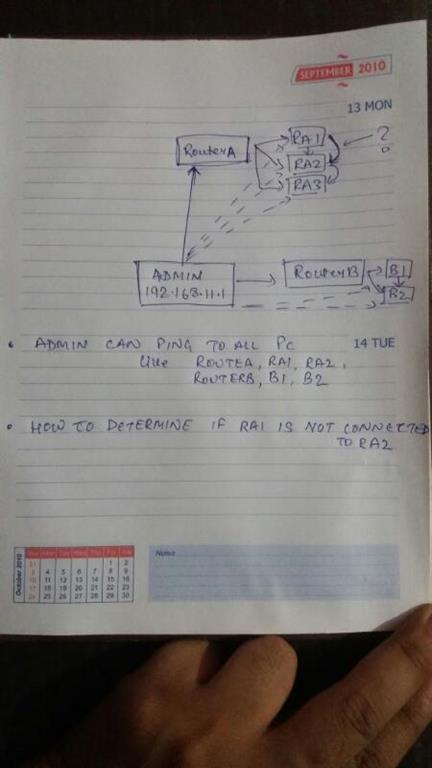 SEPTEMBER 2010
13 MON
RouterA
RA1
?
RA2
RA3
ADMIN
192.168.11.1
RouterB
B1
B2
• ADMIN CAN PING TO ALL PC
14 TUE
Like ROUTEA, RA1, RA2,
ROUTERB, B1, B2
• HOW TO DETERMINE IF RA1 IS NOT CONNECTED
TO RA2
October 2010
Sun Mon Tue Wed Thu Fri Sat
31 1 2
3 4 5 6 7 8 9
10 11 12 13 14 15 16
17 18 19 20 21 22 23
24 25 26 27 28 29 30
Notes